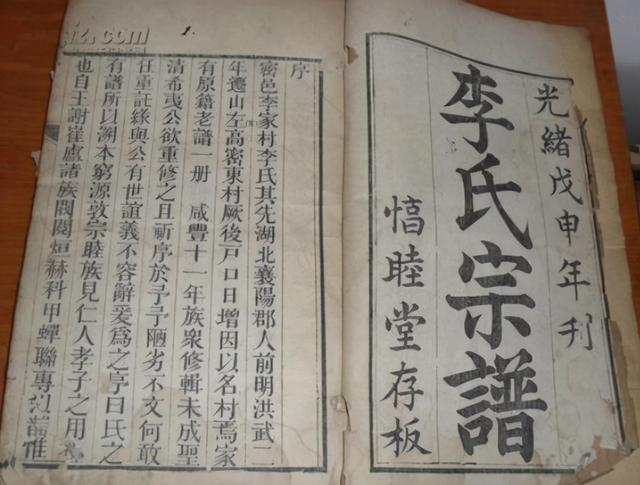 光緒戊申年刋
李氏宗譜
惇睦堂存板
序
密邑李家村李氏其先湖北襄陽郡人前明洪武二
年遷山左高密東村厥後戸口日增因以名村焉家
有原籍老譜一册 咸豐十一年族衆修輯未成聖
清希夷公欲重修之且祈序於予予陋劣不文何敢
任重託緣與公有世誼義不容辭爰爲之序曰氏之
有譜所以溯本窮源敦宗睦族見仁人孝子之用
也自王謝崔盧諸族閥閱烜赫科甲蟬聯專以譜惟
1
.com